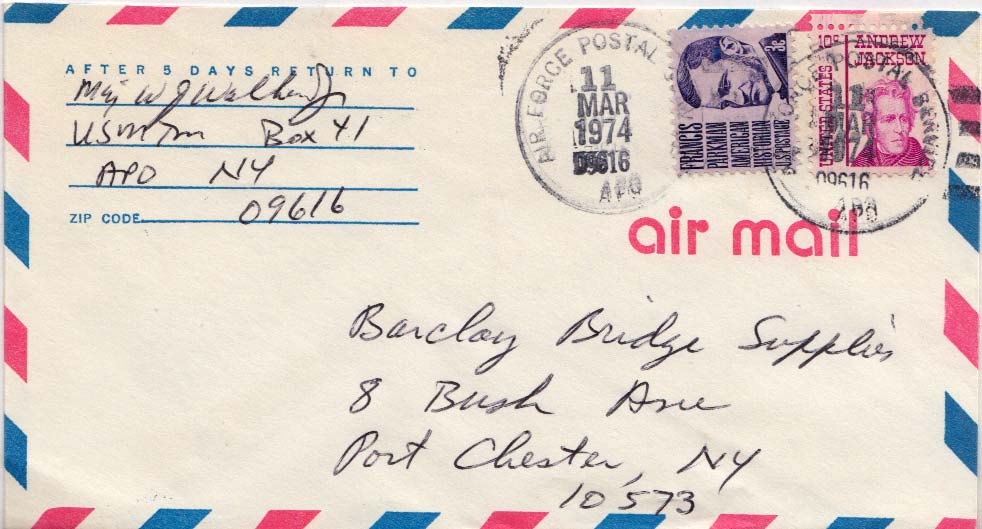 AFTER 5 DAYS RETURN TO
Maj W J Walker Jr
USMTM Box 41
APO NY
ZIP CODE 09616
AIR FORCE POSTAL
11
MAR
1974
09616
APO
3c
FRANCIS
PARKMAN
AMERICAN
HISTORIAN
US POSTAGE
10c
ANDREW
JACKSON
UNITED STATES
POSTAL SERVICE
11
MAR
1974
09616
APO
air mail
Barclay Bridge Supplies
8 Bush Ave
Port Chester, NY
10573